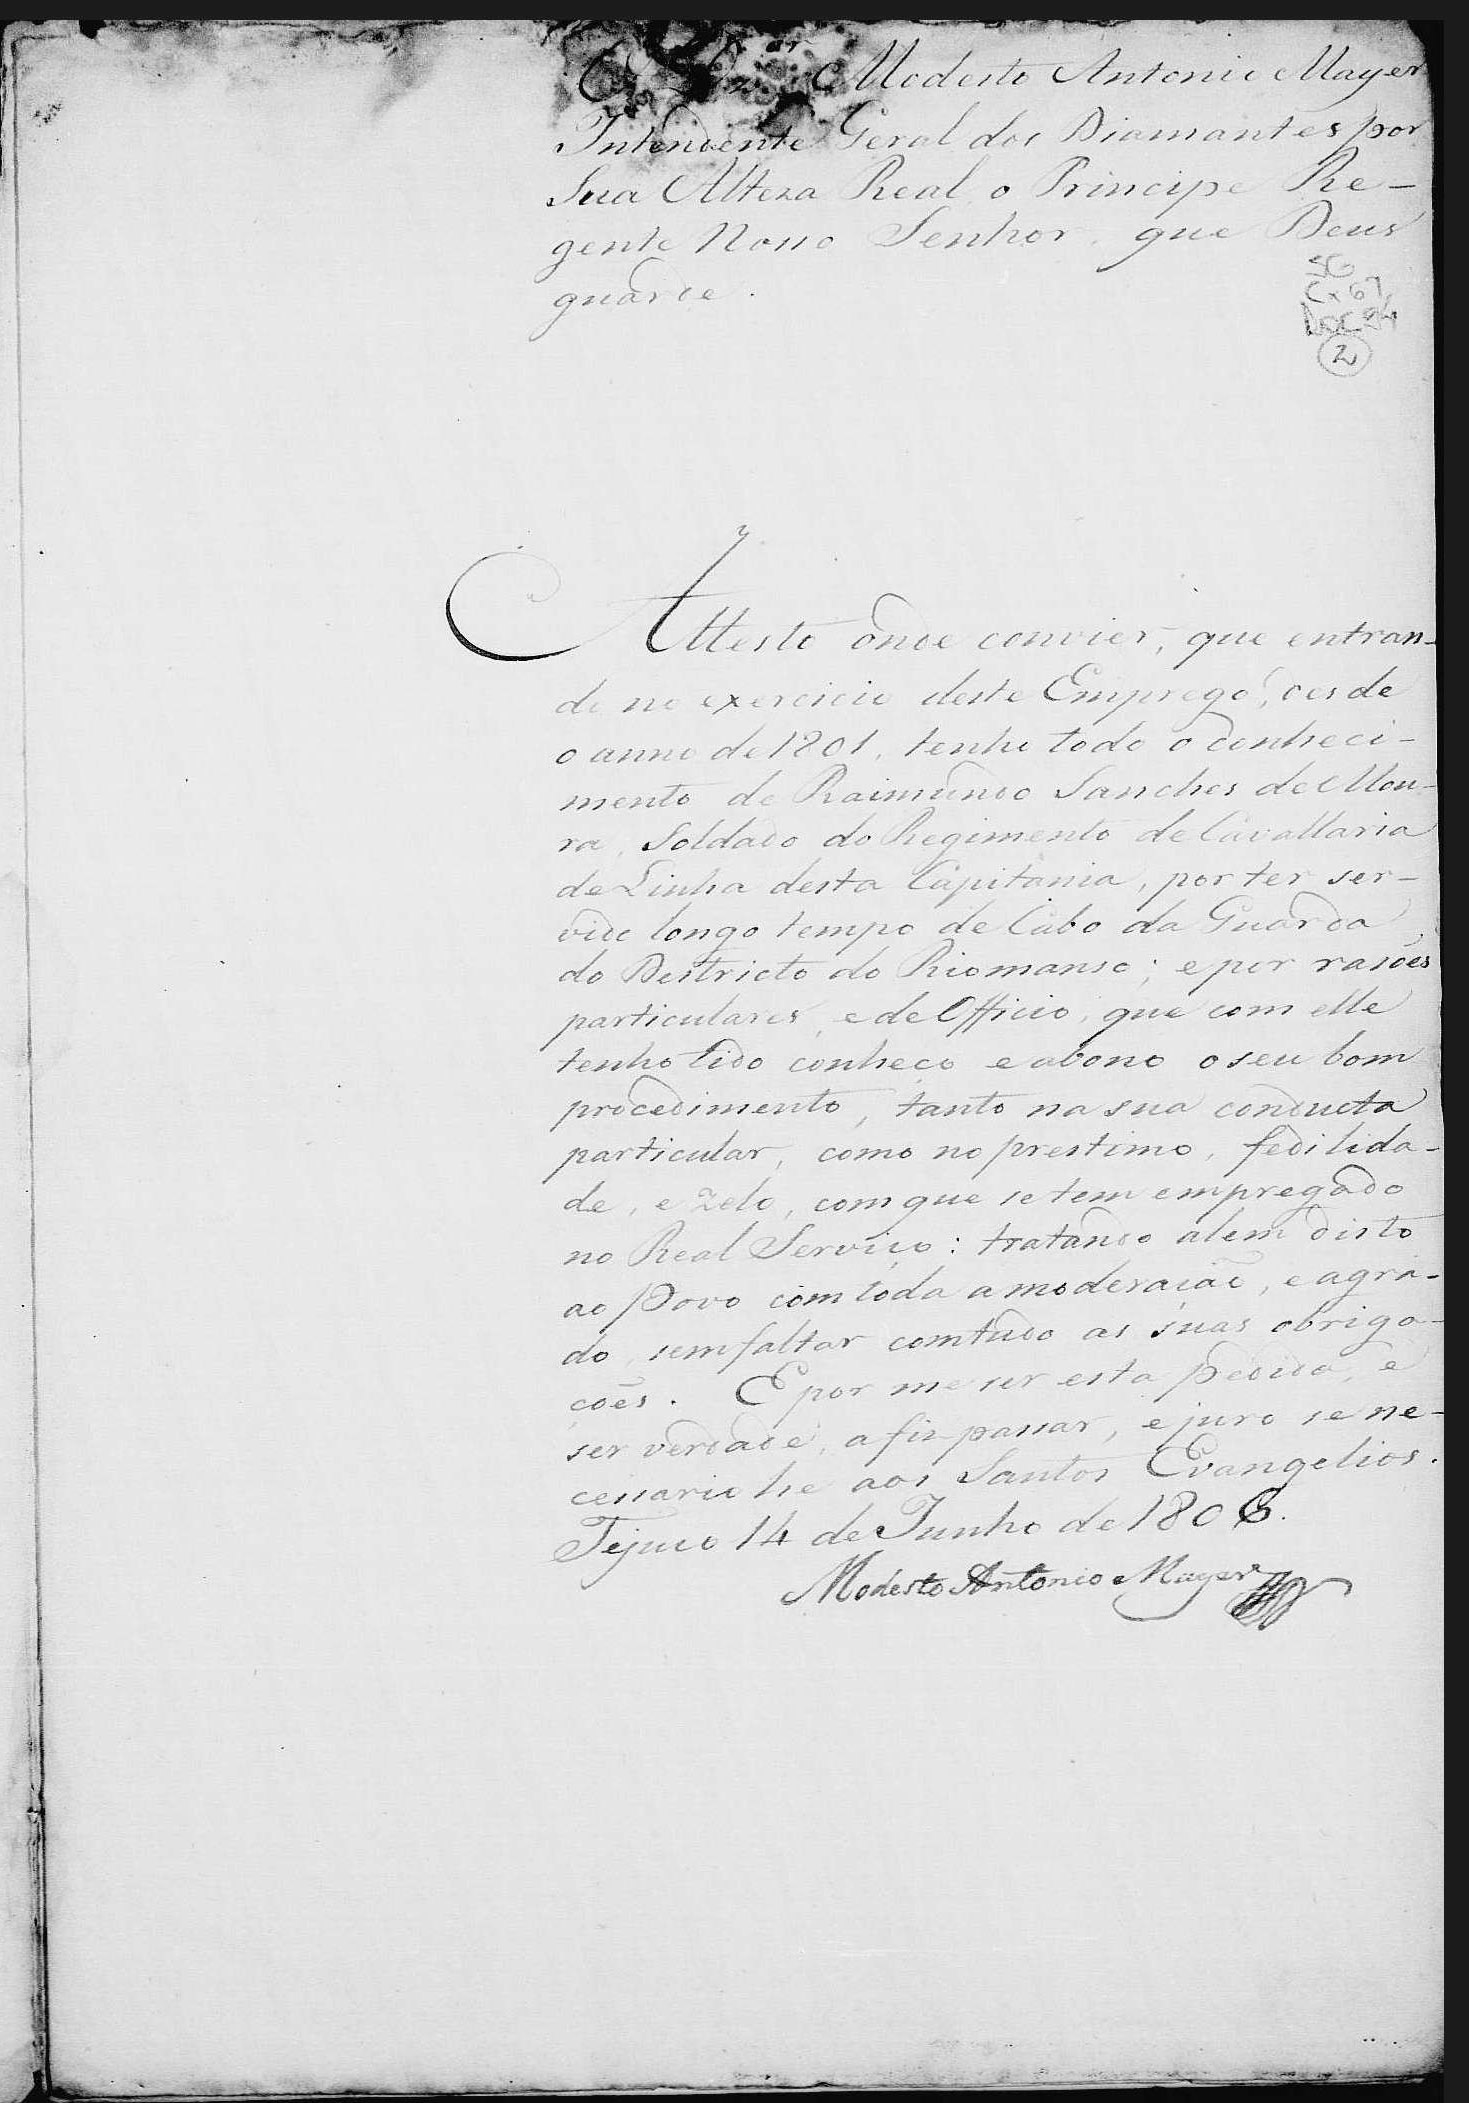 O Modesto Antonio Mayer
Intendente Geral dos Diamantes por
Sua Alteza Real o Principe Re-
gente Nosso Senhor, que Deus
guarde.
SG
Cx 67,
Doc 24
2
Attesto onde convier, que entran-
do no exercicio deste Emprego, desde
o anno de 1801, tenho todo o conheci-
mento de Raimundo Sanches de Mou-
ra, Soldado do Regimento de Cavallaria
de Linha desta Capitania, por ter ser-
vido longo tempo de Cabo da Guarda
do Destricto do Riomanso; e por rasões
particulares, e de Officio, que com elle
tenho tido conheço e abono o seu bom
procedimento, tanto na sua conducta
particular, como no prestimo, fedilida-
de, e zelo, com que se tem empregado
no Real Serviço: tratando alem disto
ao Povo com toda a moderação, e agra-
do, sem faltar comtudo as suas obriga-
coẽs. E por me ser esta pedida, e
ser verdade, a fiz passar, e juro se ne-
cessario he aos Santos Evangelios.
Tejuco 14 de Junho de 1806.
Modesto Antonio Mayer